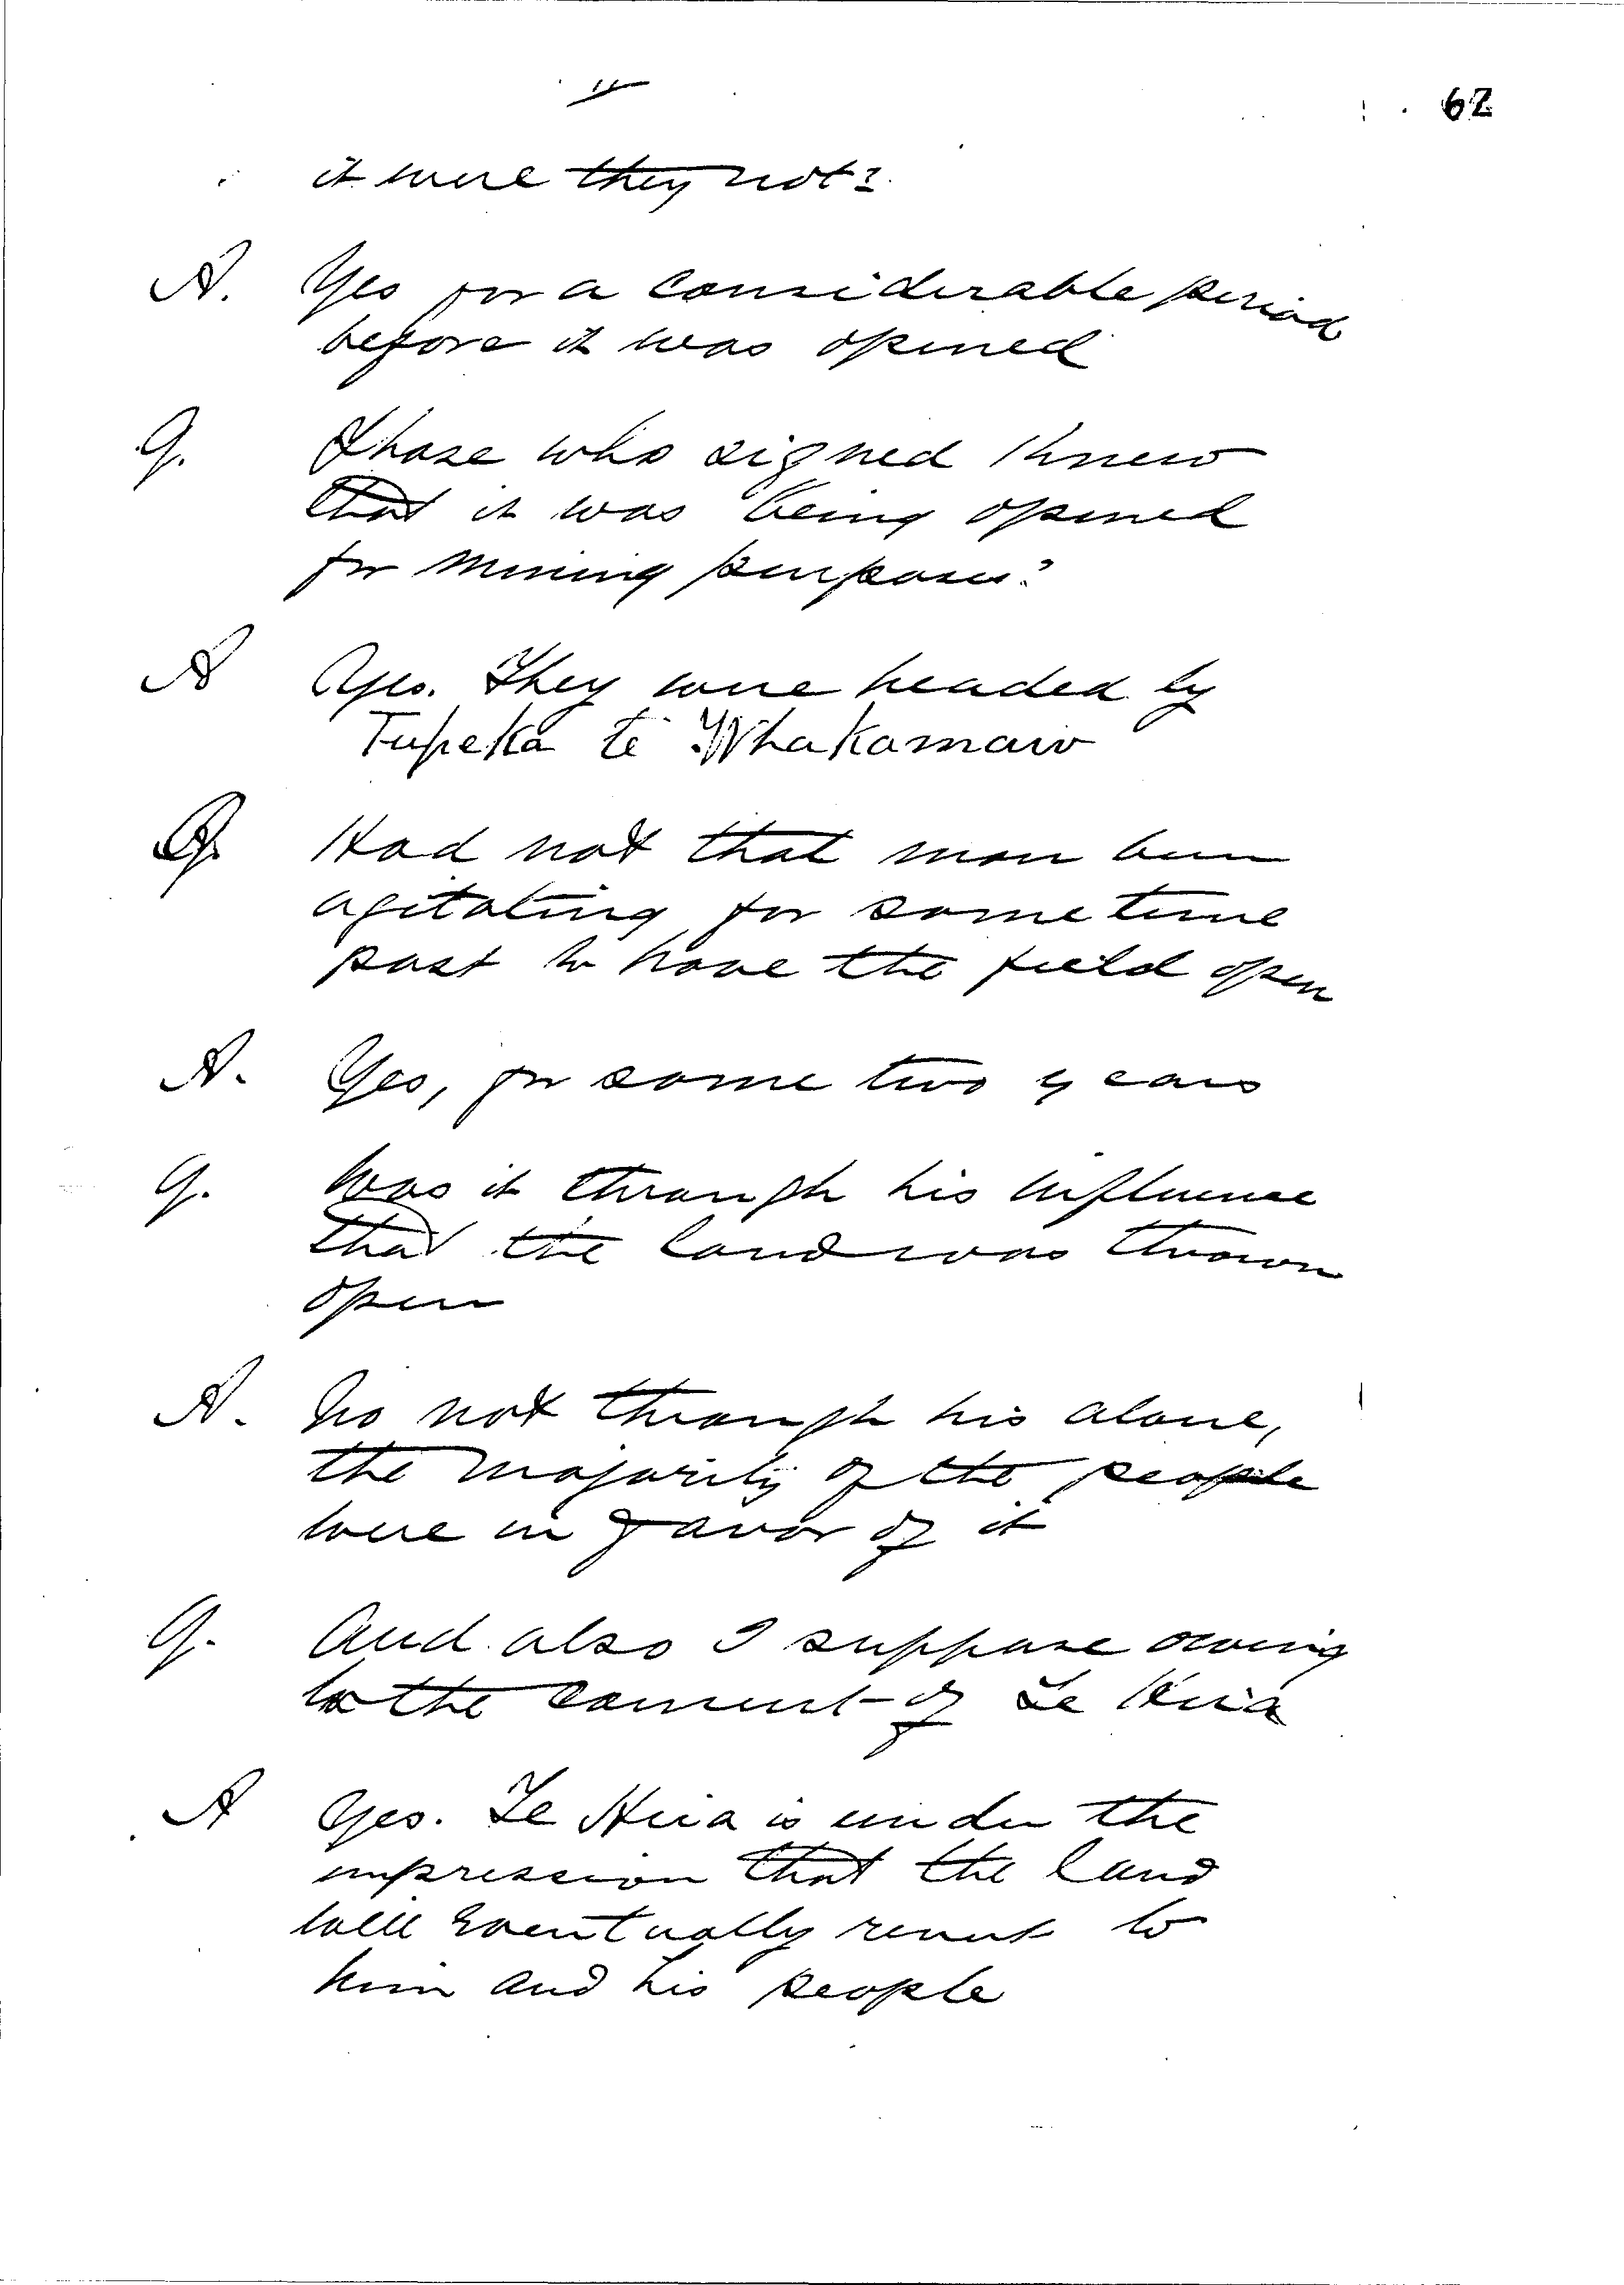 62
it were they not?
A. Yes for a considerable period
before it was opened
Q. Those who signed knew
that it was being opened
for mining purposes?
A Yes. They were headed by
Tupeka te Whakamaw
Q. Had not that man been
agitating for some time
past to have the field open
A. Yes, for some two years
Q. Was it through his influence
that the land was thrown
open
A. No not through his alone,
the majority of the people
were in favor of it
Q. And also I suppose owing
to the consent of Te Hira
A Yes. Te Hira is under the
impression that the land
will eventually revert to
him and his people